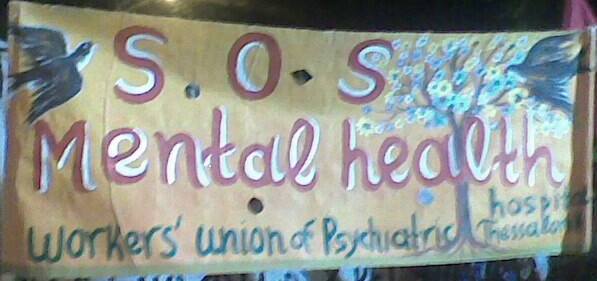 S.O.S
Mental health
workers' union of Psychiatric hospital